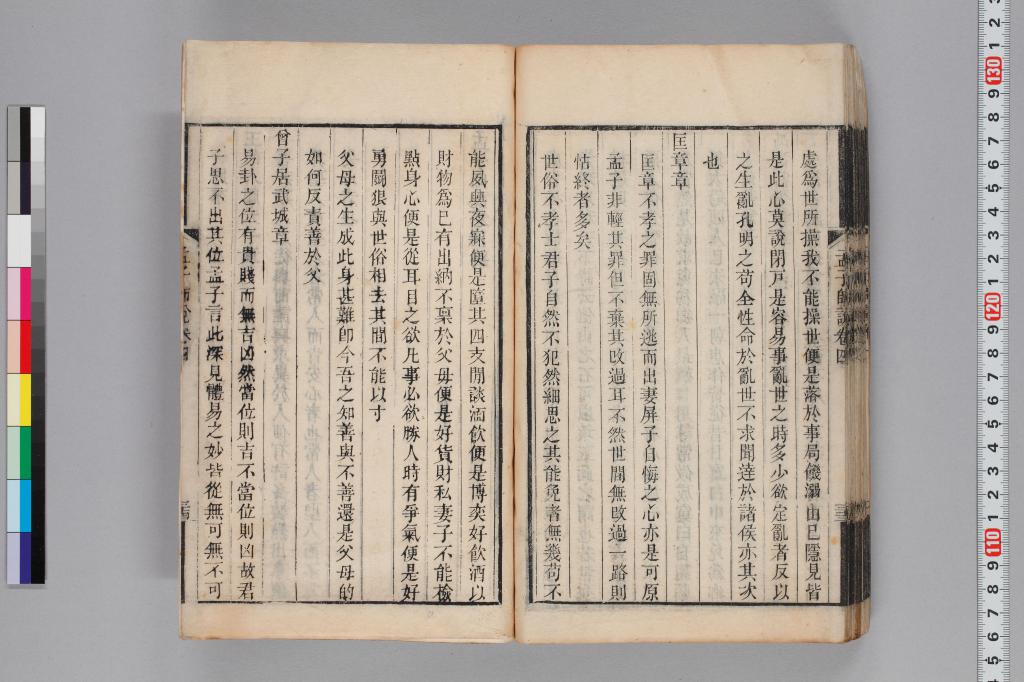 處爲世所操我不能操世便是落於事局饑溺由己隱見皆
是此心莫說閉戸是容易事亂世之時多少欲定亂者反以
之生亂孔明之苟全性命於亂世不求聞達於諸侯亦其次
也
匡章章
匡章不孝之罪固無所逃而出妻屏子自悔之心亦是可原
孟子非輕其罪但不棄其改過耳不然世間無改過一路則
怙終者多矣
世俗不孝士君子自然不犯然細思之其能免者無幾苟不
能夙興夜寐便是墮其四支閒談湎飲便是博奕好飲酒以
財物爲己有出納不稟於父母便是好貨財私妻子不能檢
點身心便是從耳目之欲凡事必欲勝人時有爭氣便是好
勇鬬狠與世俗相去其間不能以寸
父母之生成此身甚難卽今吾之知善與不善還是父母的
如何反責善於父
曾子居武城章
易卦之位有貴賤而無吉凶然當位則吉不當位則凶故君
子思不出其位孟子言此深見體易之妙皆從無可無不可
孟子師說卷四
三三
孟子師說卷四